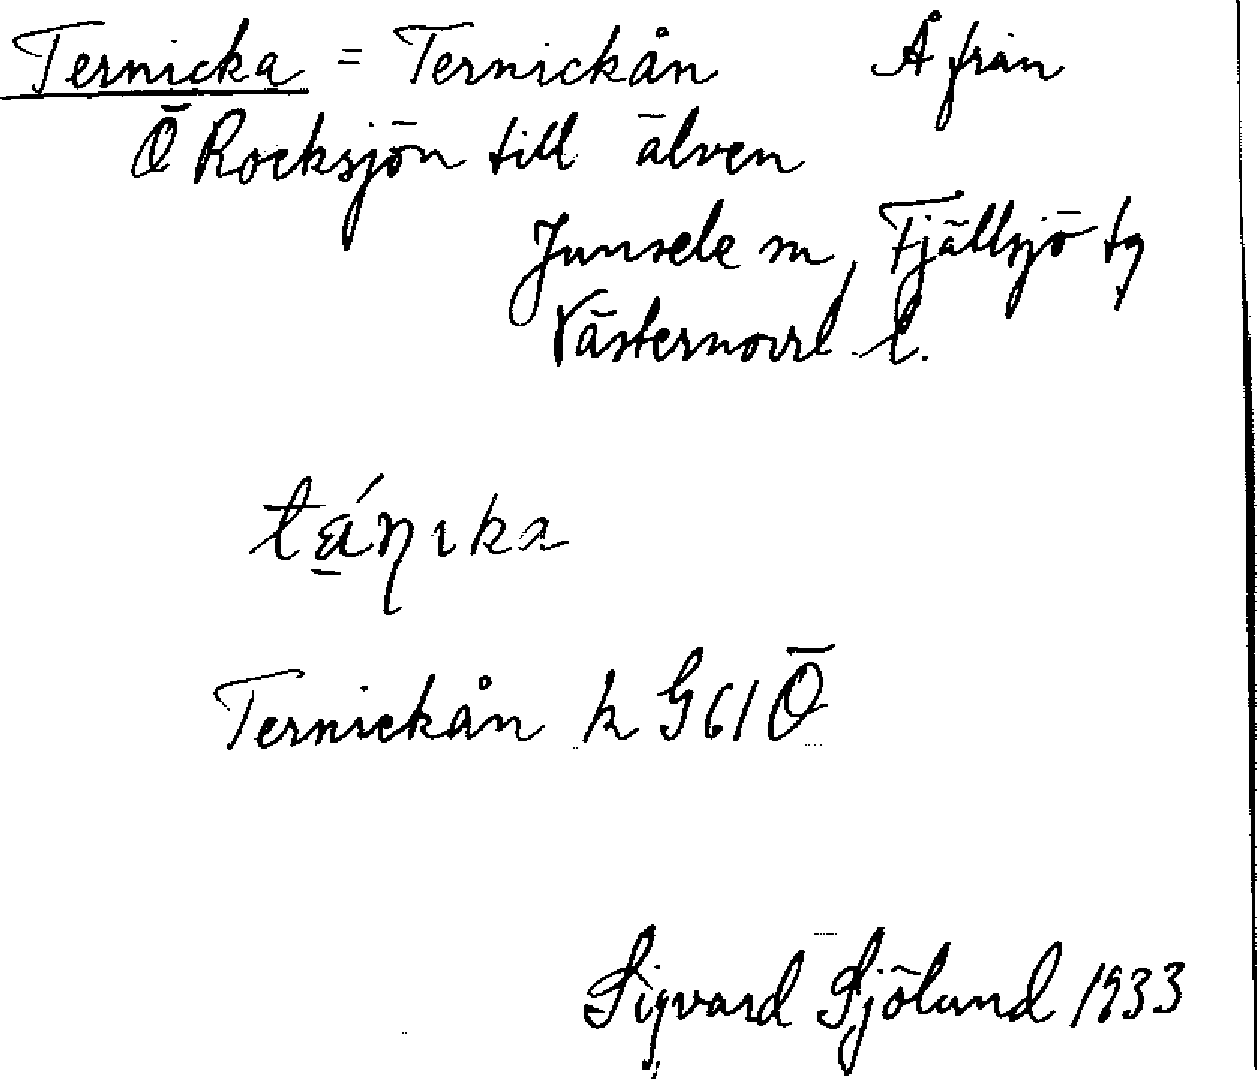 Ternicka = Ternickån Å från
Ö Rocksjön till älven
Junsele sn, Fjällsjö tg
Västernorrl. l.
Ternickån k G61Ö
Sigvard Sjölund 1933